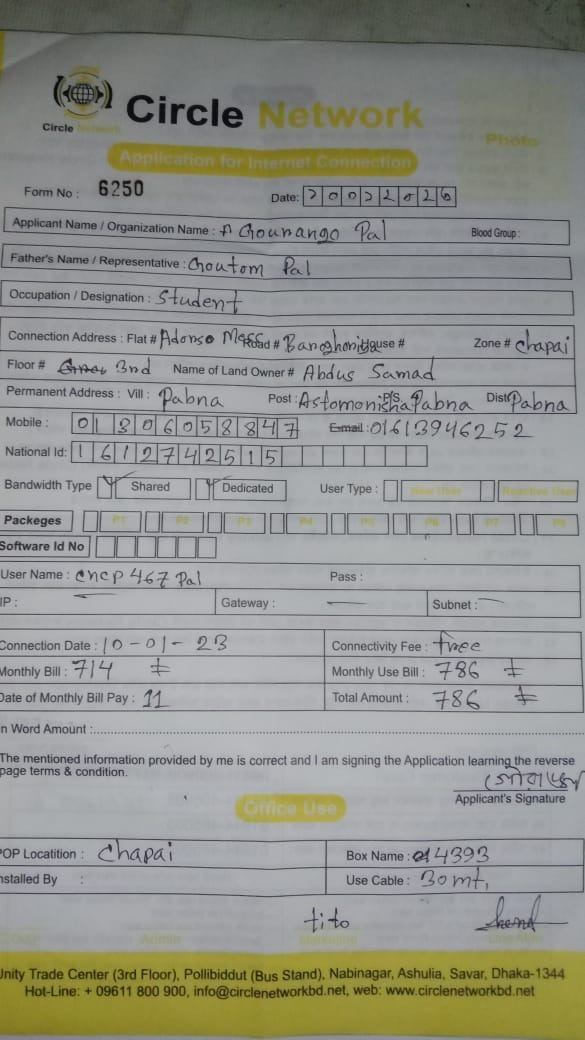 Circle Network
Circle Network
Photo
Application for Internet Connection
Form No : 6250 Date:
Applicant Name / Organization Name : Gourango Pal Blood Group :
Father's Name / Representative : Goutom Pal
Occupation / Designation : Student
Connection Address : Flat # Adonso Mess Road # House # Zone # Chapai
Floor # 3nd Name of Land Owner # Abdus Samad
Permanent Address : Vill : Pabna Post : Astomonisha P/S. Pabna Dist Pabna
Mobile : 01306058847 Email : 01613946252
National Id: 1612742515
Bandwidth Type Shared Dedicated User Type : New User Reactive User
Packeges P1 P2 P3 P4 P5 P6 P7 P8
Software Id No
User Name : cncp 467 Pal Pass :
IP : — Gateway : — Subnet : —
Connection Date : 10-01-23 Connectivity Fee : free
Monthly Bill : 714 Monthly Use Bill : 786
Date of Monthly Bill Pay : 11 Total Amount : 786
In Word Amount :
The mentioned information provided by me is correct and I am signing the Application learning the reverse
page terms & condition.
Applicant's Signature
Office Use
POP Locatition : Chapai Box Name : 4393
Installed By : Use Cable : 30mt,
tito
Admin Marketing Line Man
Unity Trade Center (3rd Floor), Pollibiddut (Bus Stand), Nabinagar, Ashulia, Savar, Dhaka-1344
Hot-Line: + 09611 800 900, info@circlenetworkbd.net, web: www.circlenetworkbd.net